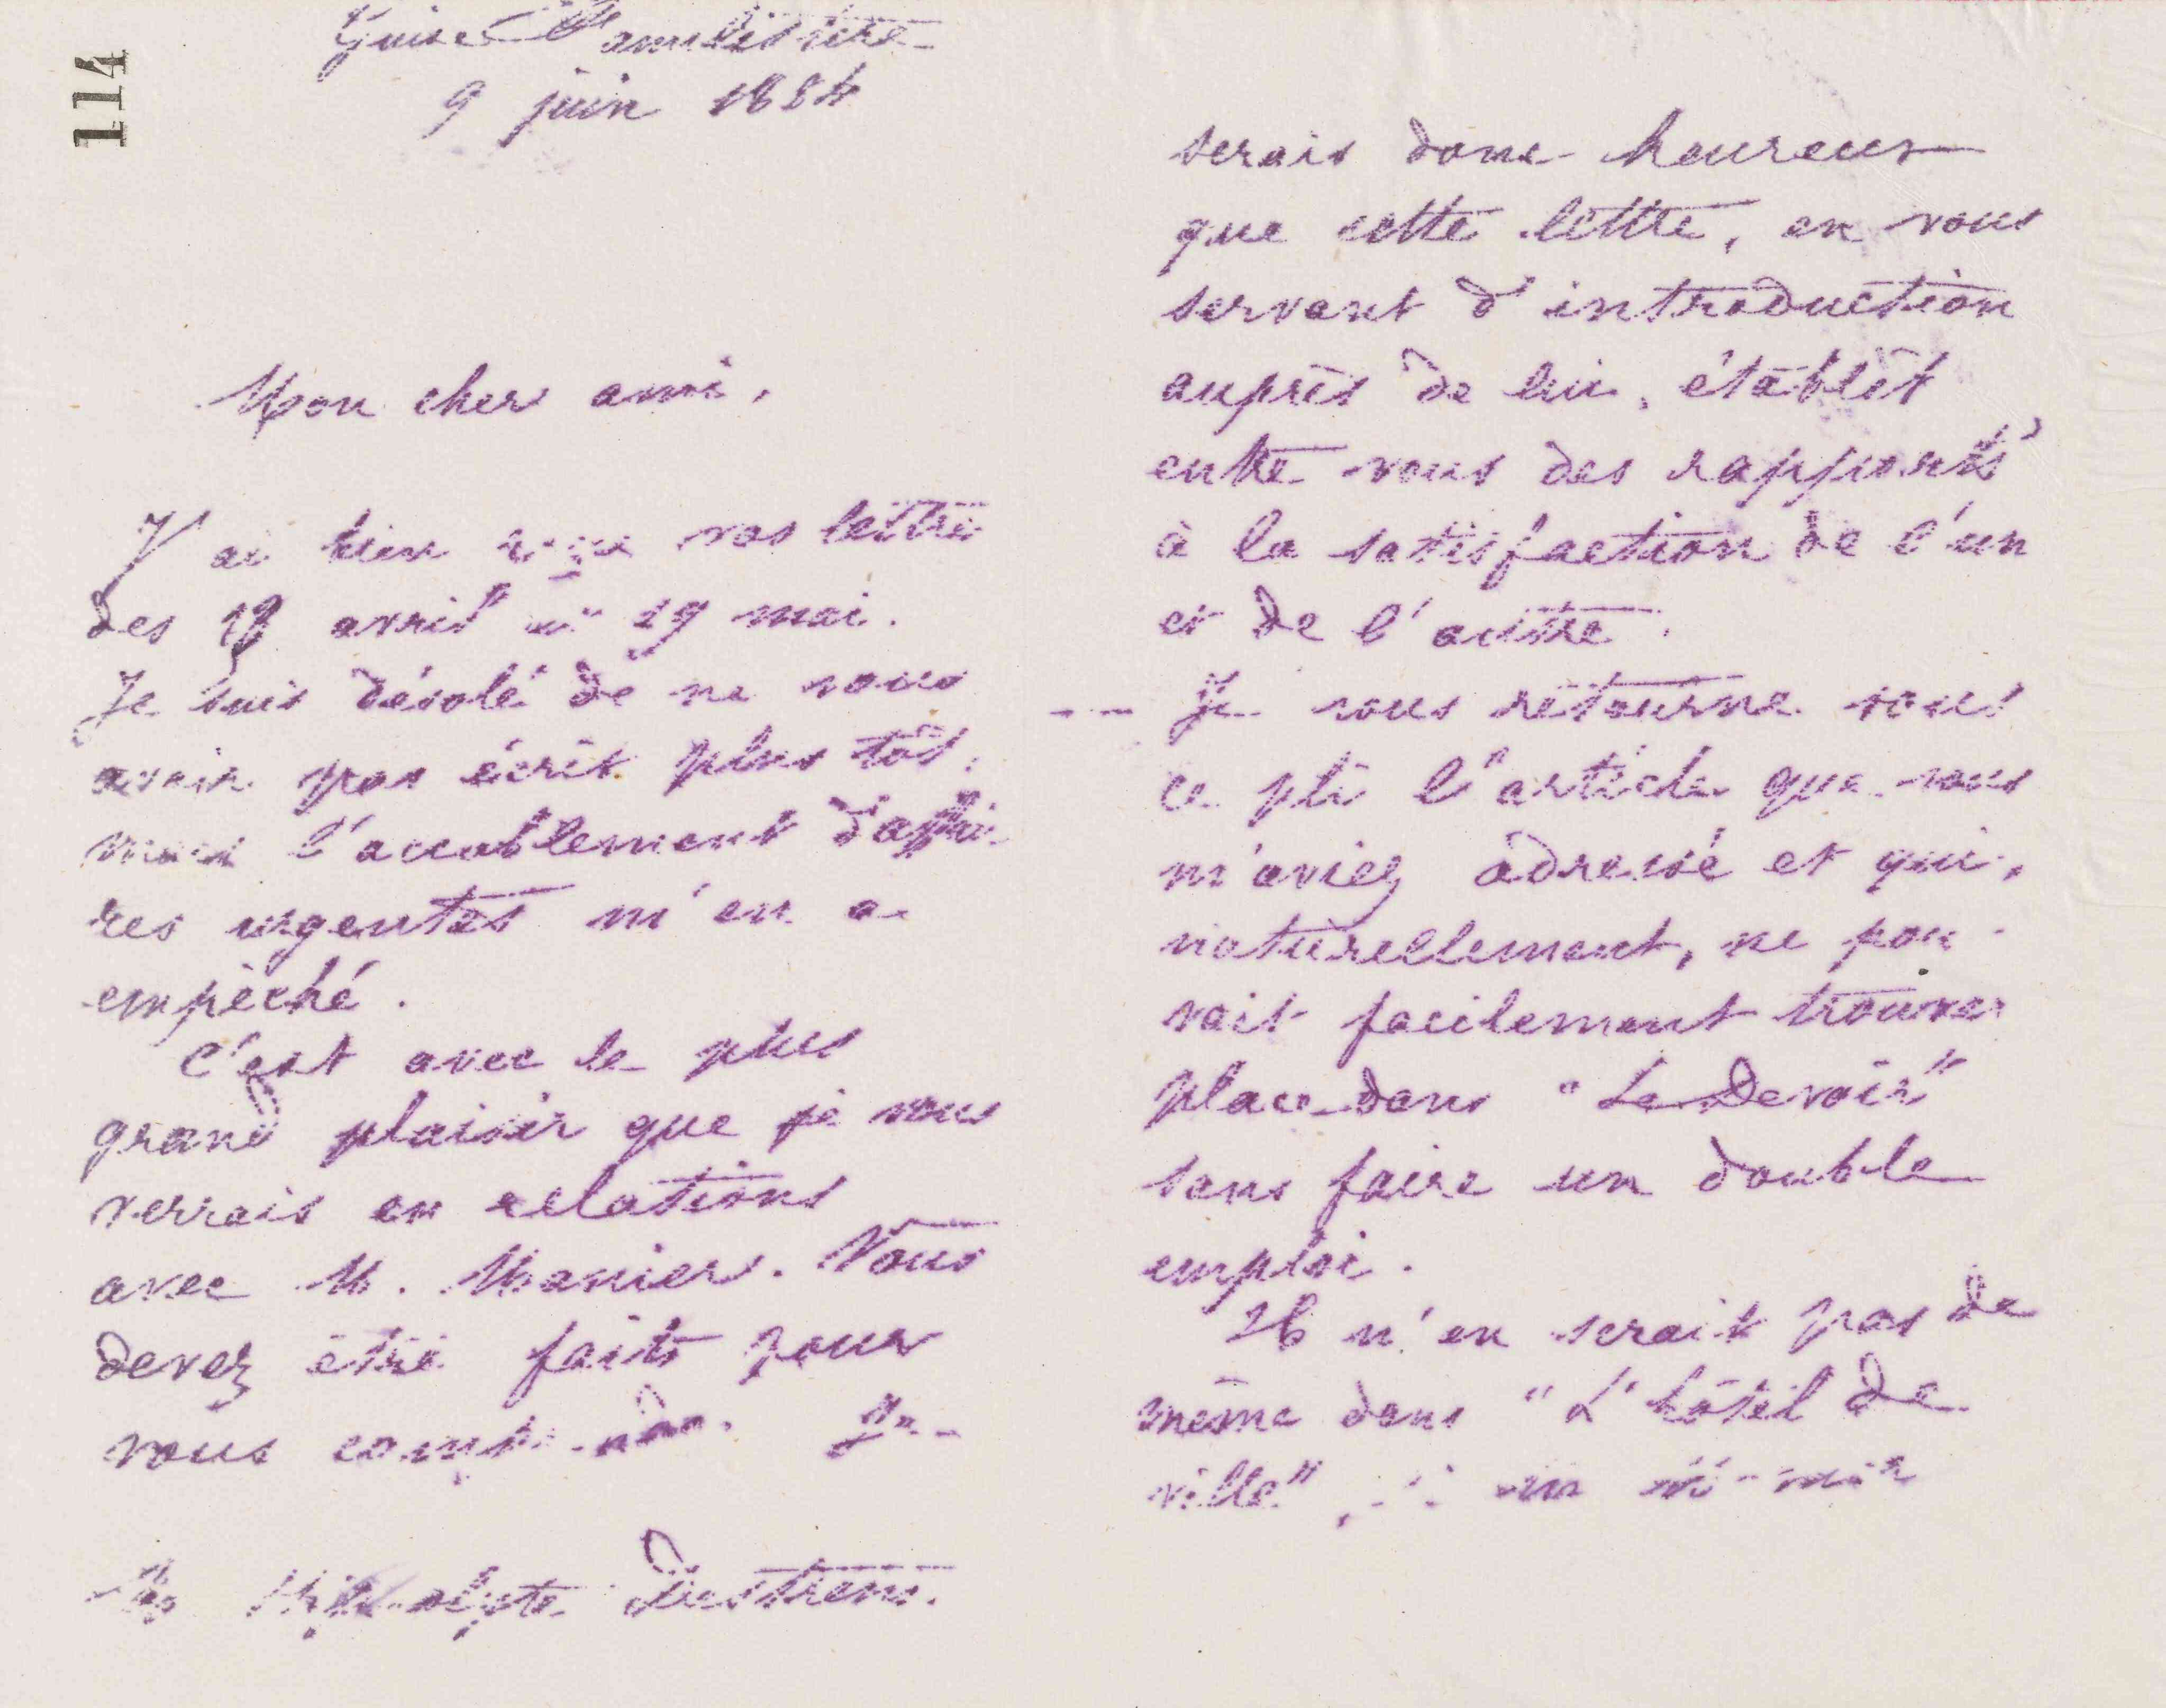 114
Guise Familistère
9 juin 1884
Mon cher ami,
J'ai bien reçu vos lettres
des 18 avril et 19 mai.
Je suis désolé de ne vous
avoir pas écrit plus tôt,
mais l'accablement d'affai-
res urgentes m'en a
empêché.
C'est avec le plus
grand plaisir que je vous
verrais en relations
avec M. Manier. Vous
devez être faits pour
vous comprendre. Je
Mr Hippolyte Destrem.
serais donc heureux
que cette lettre, en vous
servant d'introduction
auprès de lui, établît
entre vous des rapports
à la satisfaction de l'un
et de l'autre.
Je vous retourne sous
ce pli l'article que vous
m'aviez adressé et qui,
naturellement, ne pou-
vait facilement trouver
place dans "Le Devoir"
sans faire un double
emploi.
Il n'en serait pas de
même dans "L'hôtel de
ville",